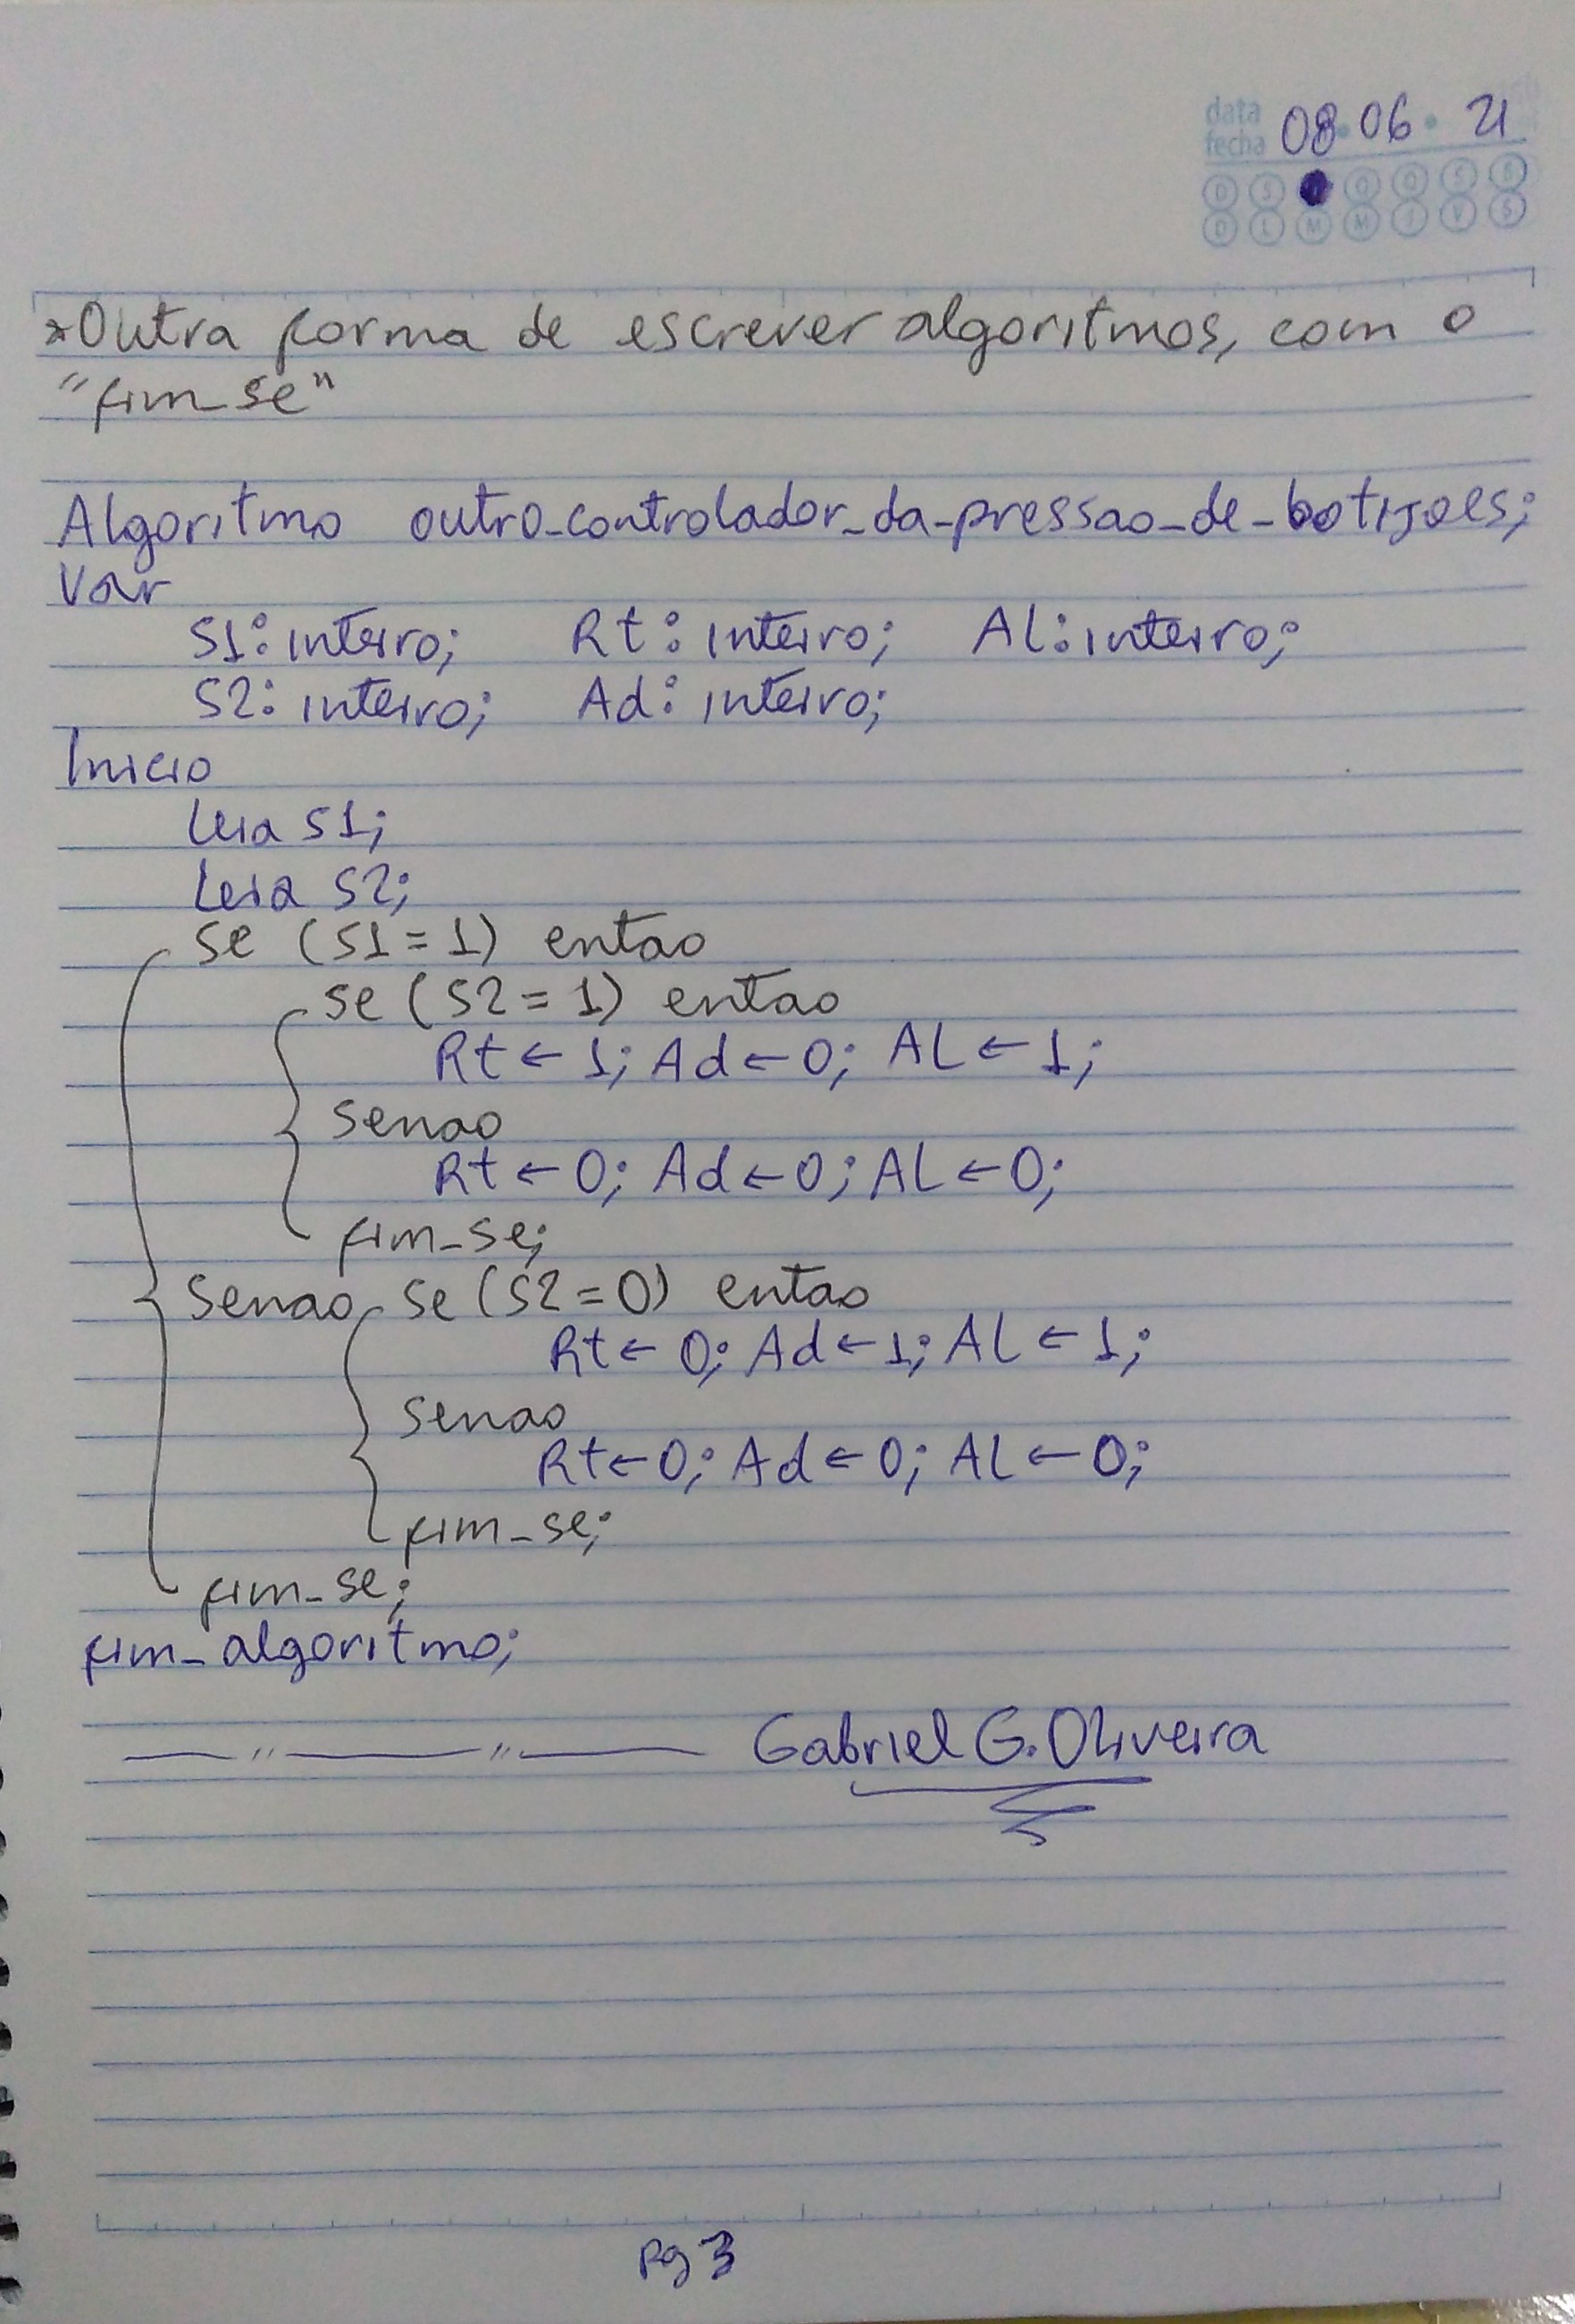 data
fecha 08 06 21
D S Q Q S S
D L M M J V S
*Outra forma de escrever algoritmos, com o
"fim_se"
Algoritmo outro_controlador_da_pressao_de_botijoes;
Var
S1: inteiro; Rt: inteiro; AL: inteiro;
S2: inteiro; Ad: inteiro;
Inicio
Leia S1;
Leia S2;
se (S1=1) entao
se (S2=1) entao
Rt ← 1; Ad ← 0; AL ← 1;
senao
Rt ← 0; Ad ← 0; AL ← 0;
fim_se;
senao se (S2=0) entao
Rt ← 0; Ad ← 1; AL ← 1;
senao
Rt ← 0; Ad ← 0; AL ← 0;
fim_se;
fim_se;
fim_algoritmo;
—"—"— Gabriel G. Oliveira
Pg 3